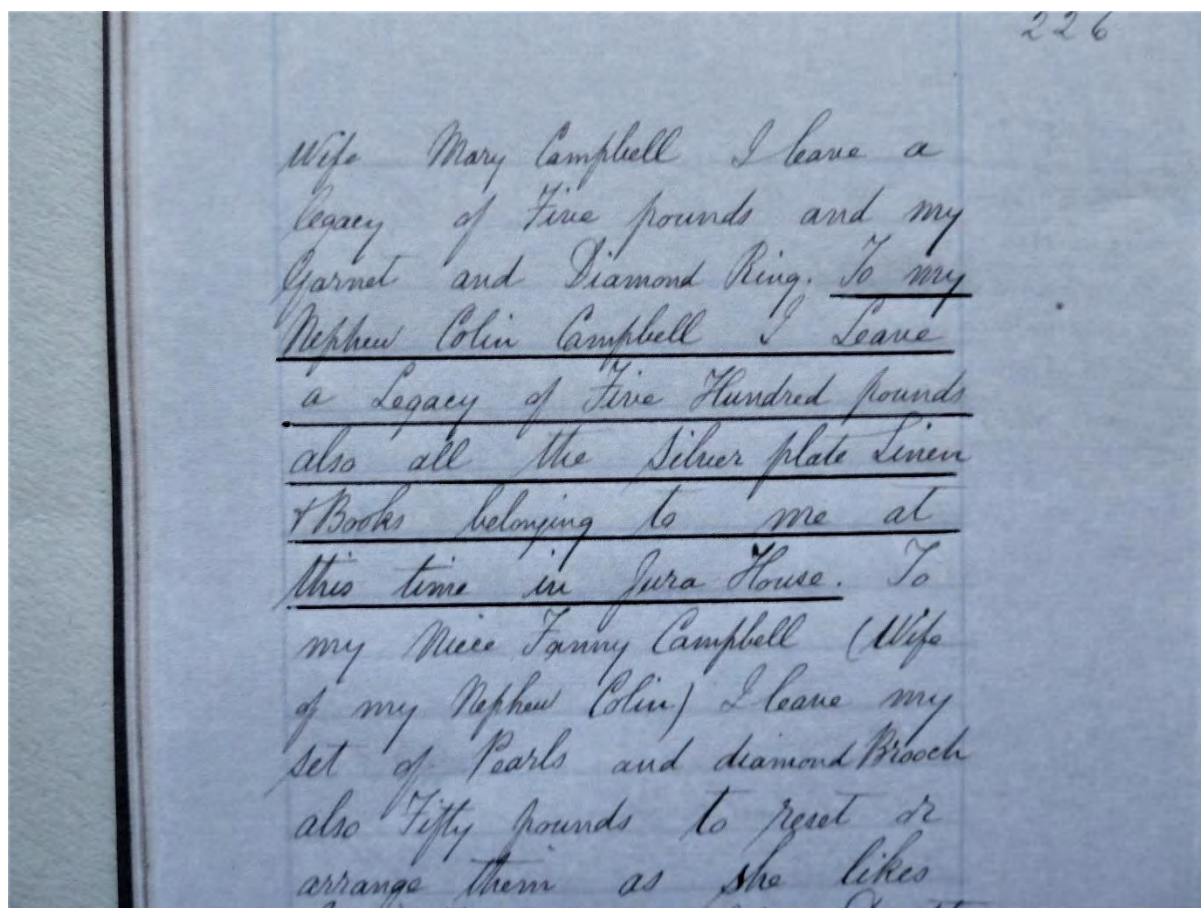 226
Wife Mary Campbell I leave a
legacy of Five pounds and my
Garnet and Diamond Ring. To my
Nephew Colin Campbell I Leave
a Legacy of Five Hundred pounds
also all the Silver plate Linen
& Books belonging to me at
this time in Jura House. To
my Niece Fanny Campbell (Wife
of my Nephew Colin) I leave my
set of Pearls and diamond Brooch
also Fifty pounds to reset or
arrange them as she likes